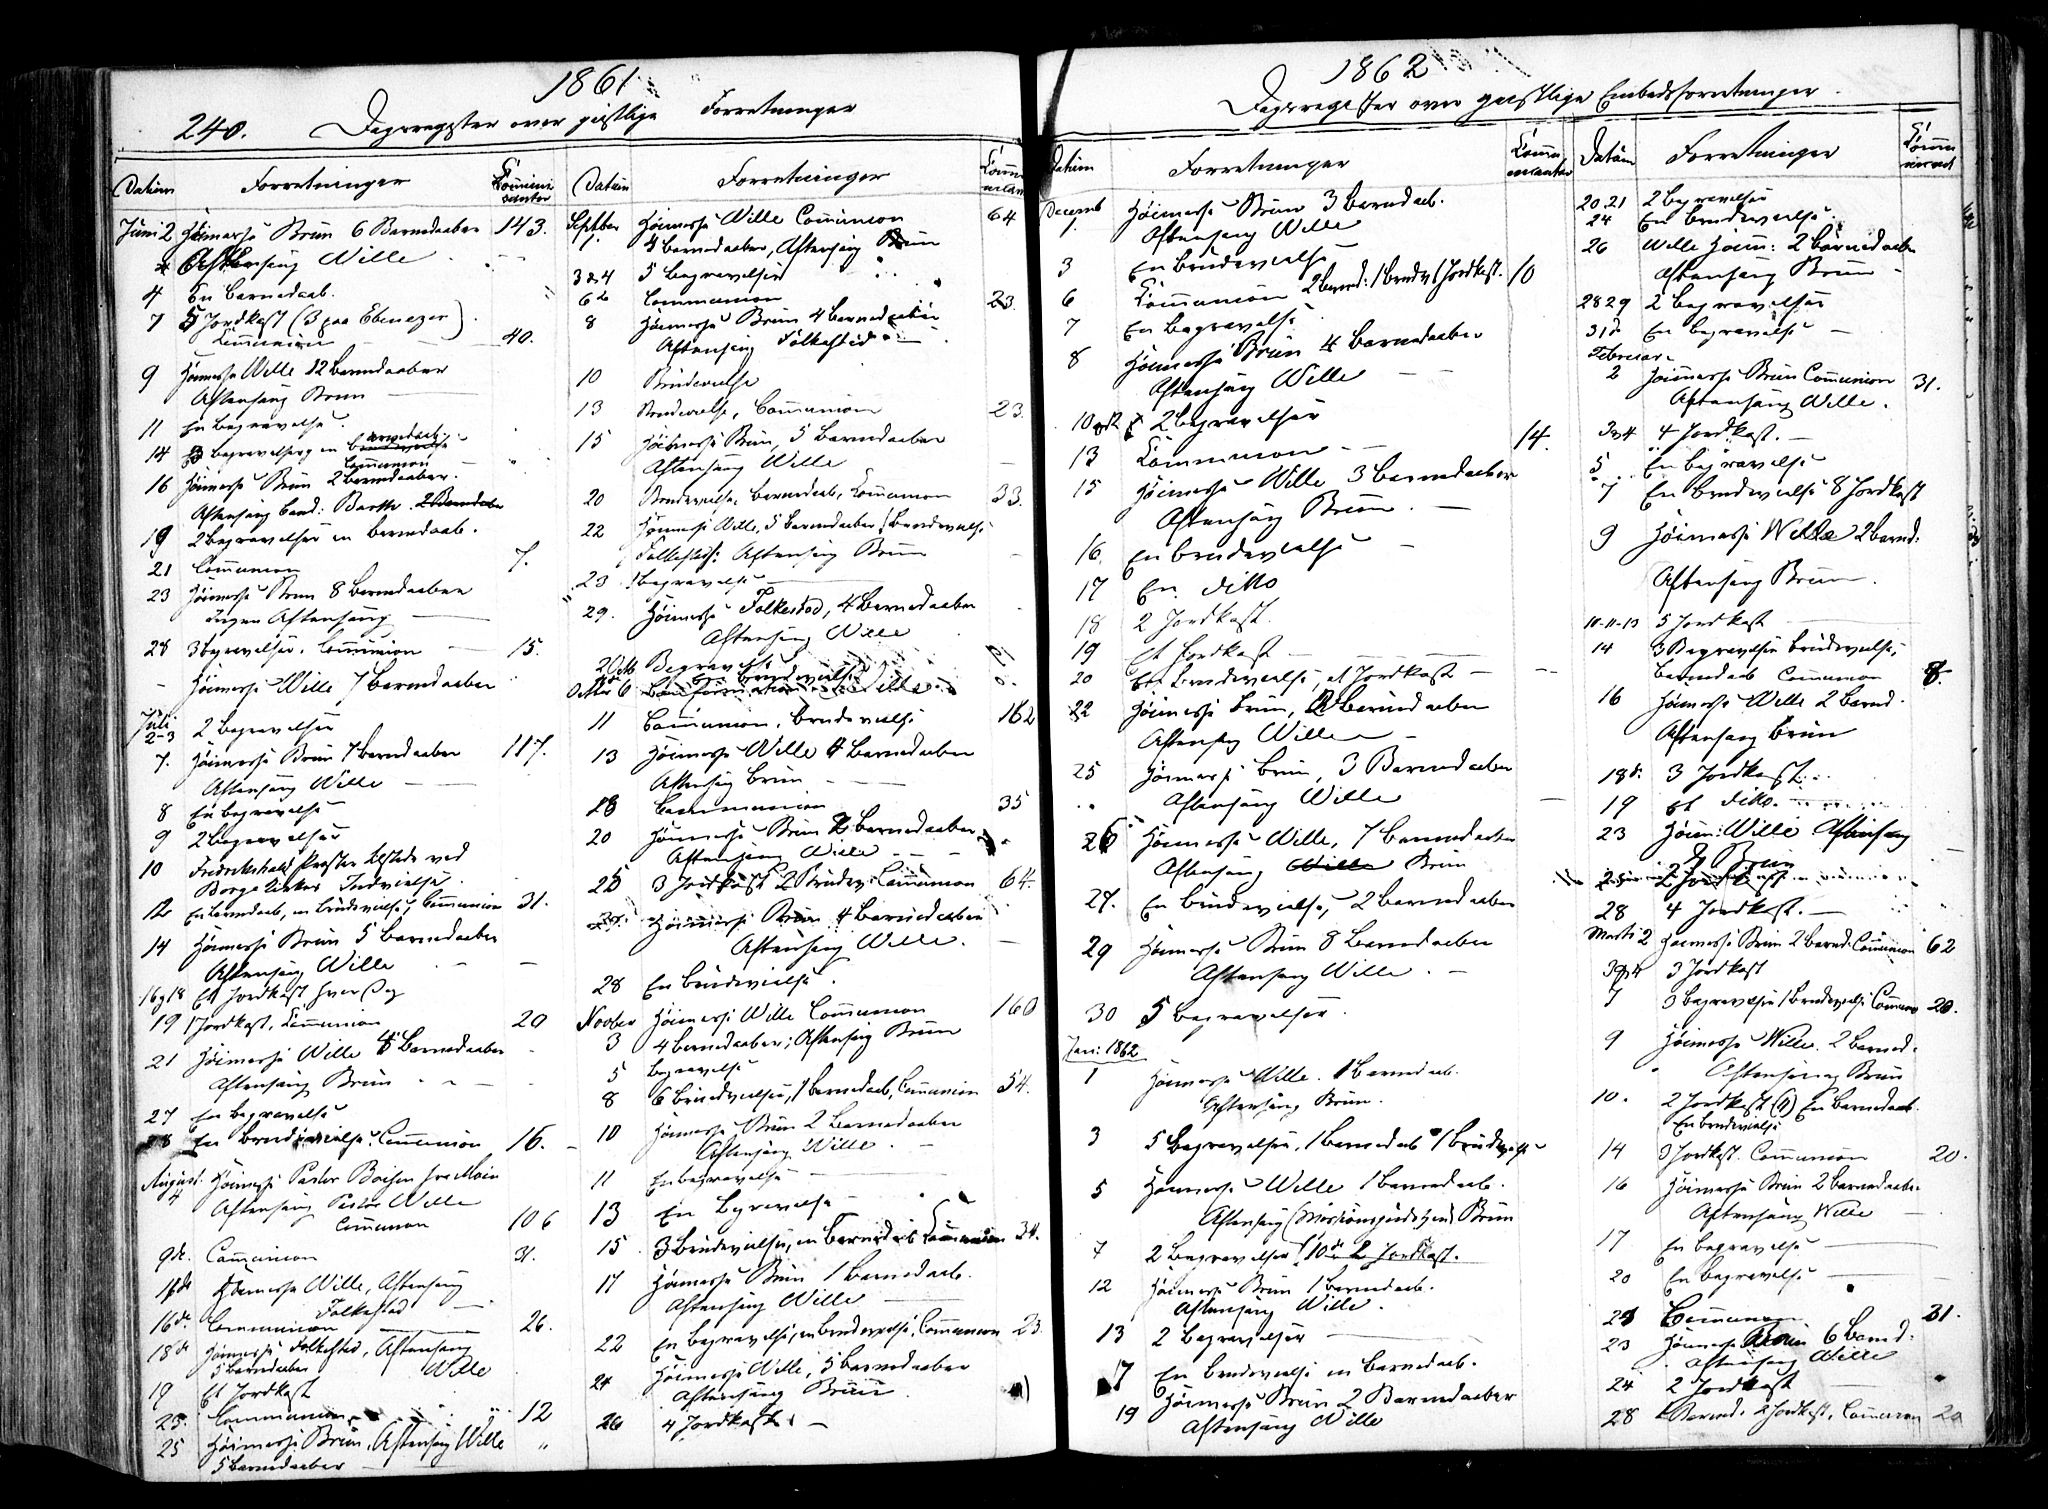 1861
240. Dagsregister over geistlige Forretninger
Datum Forretninger Communicanter
Juni 2 Høimesse Brun 6 Barnedaaber 143.
Aftensang Wille
4 En Barnedaab.
7 5 Jordkast (3 paa Ebenezer)
Communion 40.
9 Høimesse Wille 12 Barnedaaber
Aftensang Brun
11 En Begravelse.
14 3 Begravelser en Barnedaab
Communion
16 Høimesse Brun 2 Barnedaaber.
Aftensang Cand: Barth. 2 Barnedaaber
19 2 Begravelser en Barnedaab.
21 Communion 7.
23 Høimesse Brun 8 Barnedaaber
Ingen Aftensang
28 3 Begravelser. Communion 15.
Høimesse Wille 7 Barnedaaber
Juli
2-3 2 Begravelser
7. Høimesse Brun 7 Barnedaaber 117.
Aftensang Wille
8 En Begravelse
9 2 Begravelser
10 Fredrikshald Præster tilstede ved
Borge Kirkes Indvielse.
12 En Barnedaab, en Brudevielse, Communion 31.
14 Høimesse Brun 5 Barnedaaber
Aftensang Wille
16 og 18 Et Jordkast hver Dag
19 1 Jordkast, Communion 20
21 Høimesse Wille 8 Barnedaaber
Aftensang Brun
27 En Begravelse
28 En Brudevielse. Communion 16.
August. Høimesse Pastor Boisen
4 Aftensang Pastor Wille
Communion 106
9de Communion 31.
11te Høimesse Wille, Aftensang
Folkestad
16de Communion 26.
18de Høimesse Folkestad, Aftensang
5 Barnedaaber Wille
19 Et Jordkast
23. Communion 12
25 Høimesse Brun, Aftensang Wille
5 Barnedaaber
Datum Forretninger
Septber Høimesse Wille Communion 64
1. 4 Barnedaaber, Aftensang Brun
3 & 4 5 Begravelser
6te Communion 23.
8 Høimesse Brun 4 Barnedaaber
Aftensang Folkestad
10 Brudevielse
13 Brudevielse, Communion 23.
15 Høimesse Brun, 5 Barnedaaber
Aftensang Wille
20 Brudevielse. Barnedaab, Communion 33.
22 Høimesse Wille, 5 Barnedaaber 1 Brudevielse
Folkestad: Aftensang Brun
23 1 Begravelse
29. Høimesse Folkestad, 4 Barnedaaber
Aftensang Wille
2 Octb Begravelse
en Brudevielse
Octbr 6 Confirmation Wille
11 Communion. Brudevielse 162
13 Høimesse Wille 4 Barnedaaber
Aftensang Brun
18 Communion 35
20 Høimesse Brun 2 Barnedaaber
Aftensang Wille
25 3 Jordkast 2 Brudev. Communion 64.
27. Høimesse Brun 4 Barnedaaber
Aftensang Wille.
28 En Brudevielse.
Novber Høimesse Wille Communion 160
3 4 Barnedaaber; Aftensang Brun
5 Begravelse
8 6 Brudevielser, 1 Barnedaab, Communion 54.
10 Høimesse Brun 2 Barnedaaber
Aftensang Wille
11 En Begravelse
13 En Begravelse
15 3 Brudevielser, en Barnedaab Communion 34.
17 Høimesse Brun 1 Barnedaab.
Aftensang Wille
22 En Begravelse, en Brudevielse, Communion 23.
24 Høimesse Wille, 5 Barnedaaber
Aftensang Brun
26 4 Jordkast
1862
Dagsregister over geistlige Embedsforretninger.
Datum Forretninger
Decemb Høimesse Brun 3 Barnedaab.
1. Aftensang Wille
3 En Brudevielse
6 Communion 2 Barned: 1 Brudev. 1 Jordkast. 10
7 En Begravelse
8 Høimesse Brun 4 Barnedaaber
Aftensang Wille
10 og 12 2 Begravelser
13 Communion 14.
15 Høimesse Wille 3 Barnedaaber
Aftensang Brun
16. En Brudevielse
17 En ditto
18 2 Jordkast.
19 Et Jordkast
20 En Brudevielse, et Jordkast
22 Høimesse Brun, 2 Barnedaaber
Aftensang Wille
25 Høimesse Brun, 3 Barnedaaber
Aftensang Wille
26 Høimesse Wille, 7 Barnedaaber
Aftensang Wille Brun
27. En Brudevielse, 2 Barnedaaber
29 Høimesse Brun 8 Barnedaaber
Aftensang Wille.
30 5 Begravelser.
Jan: 1862
1 Høimesse Wille. 1 Barnedaab.
Aftensang Brun.
3 5 Begravelser. 1 Barnedaab 1 Brudevielse
5 Høimesse Wille 1 Barnedaab.
Aftensang (Missionsgudstjen.) Brun
7 2 Begravelser, 10de 2 Jordkast.
12 Høimesse Brun 1 Barnedaab.
Aftensang Wille.
13 2 Begravelser
17 En Brudevielse en Barnedaab.
19 Høimesse Brun 2 Barnedaaber
Aftensang Wille
Datum Forretninger
20.21 2 Begravelser
24 En Brudevielse.
26 Wille Høim: 2 Barnedaaber
Aftensang Brun
28 29 2 Begravelser
31te En Begravelse
Februar
2 Høimesse Brun Communion 31.
Aftensang Wille.
3 og 4 4 Jordkast.
5 En Begravelse
7 En Brudevielse 8 Jordkast
9 Høimesse Wille 2 Barned.
Aftensang Brun.
10-11-13 5 Jordkast
14 3 Begravelser Brudevielse,
Barnedaab Communion 8.
16 Høimesse Wille 2 Barned.
Aftensang Brun
18de 3 Jordkast.
19 Et ditto.
23 Høim: Wille Aftensang
Brun
2 Jordkast
28 4 Jordkast.
Marts 2 Høimesse Brun 2 Barned. Communion 62
3 og 4 3 Jordkast
7 3 Begravelser 1 Brudevielse Commun 20.
9 Høimesse Wille. 2 Barned.
Aftensang Brun
10. 2 Jordkast En Barnedaab.
En Brudevielse
14 3 Jordkast. Communion 20.
16 Høimesse Brun 2 Barnedaaber
Aftensang Wille
17 En Begravelse
20 En Begravelse
21 Communion 31.
23 Høimesse Brun 6 Barned.
Aftensang Wille
24 2 Jordkast
28 Barned. 2 Jordkast, Communion 20